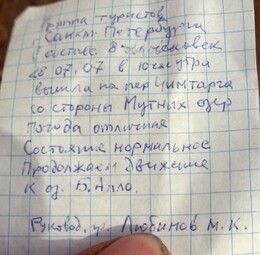 Группа туристов
г. Санкт-Петербурга
в составе 8 человек
28.07.07 в 10 час утра
вышла на пер Чимтарга
со стороны Мутных озер
Погода отличная
Состояние нормальное
Продолжаем движение
к оз. Б. Алло.
Руковод. гр. Любинов М.К.